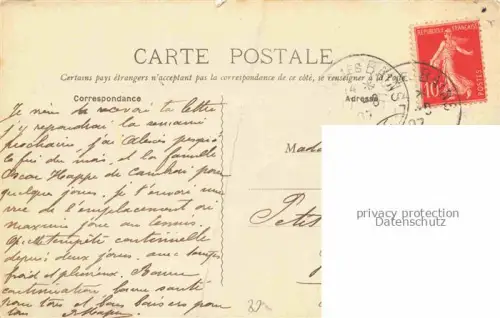 CARTE POSTALE
Certains pays étrangers n'acceptant pas la correspondance de ce côté, se renseigner à la Poste
Correspondance
Adresse
RÉPUBLIQUE FRANÇAISE
10
Je viens de recevoir ta lettre
j'y repondrai la semaine
prochaine, j'ai Alexis jusqu'à
la fin du mois, et la famille
Oscar Happe de Cambrai pour
quelques jours. je t'envoie une
vue de l'emplacement où
joue au tennis.
tempête continuelle
depuis deux jours, avec temps
froid et pluvieux. Bonne
continuation, bonne santé
pour tous et bons baisers pour
ton
Mada
Petit
privacy protection
Datenschutz